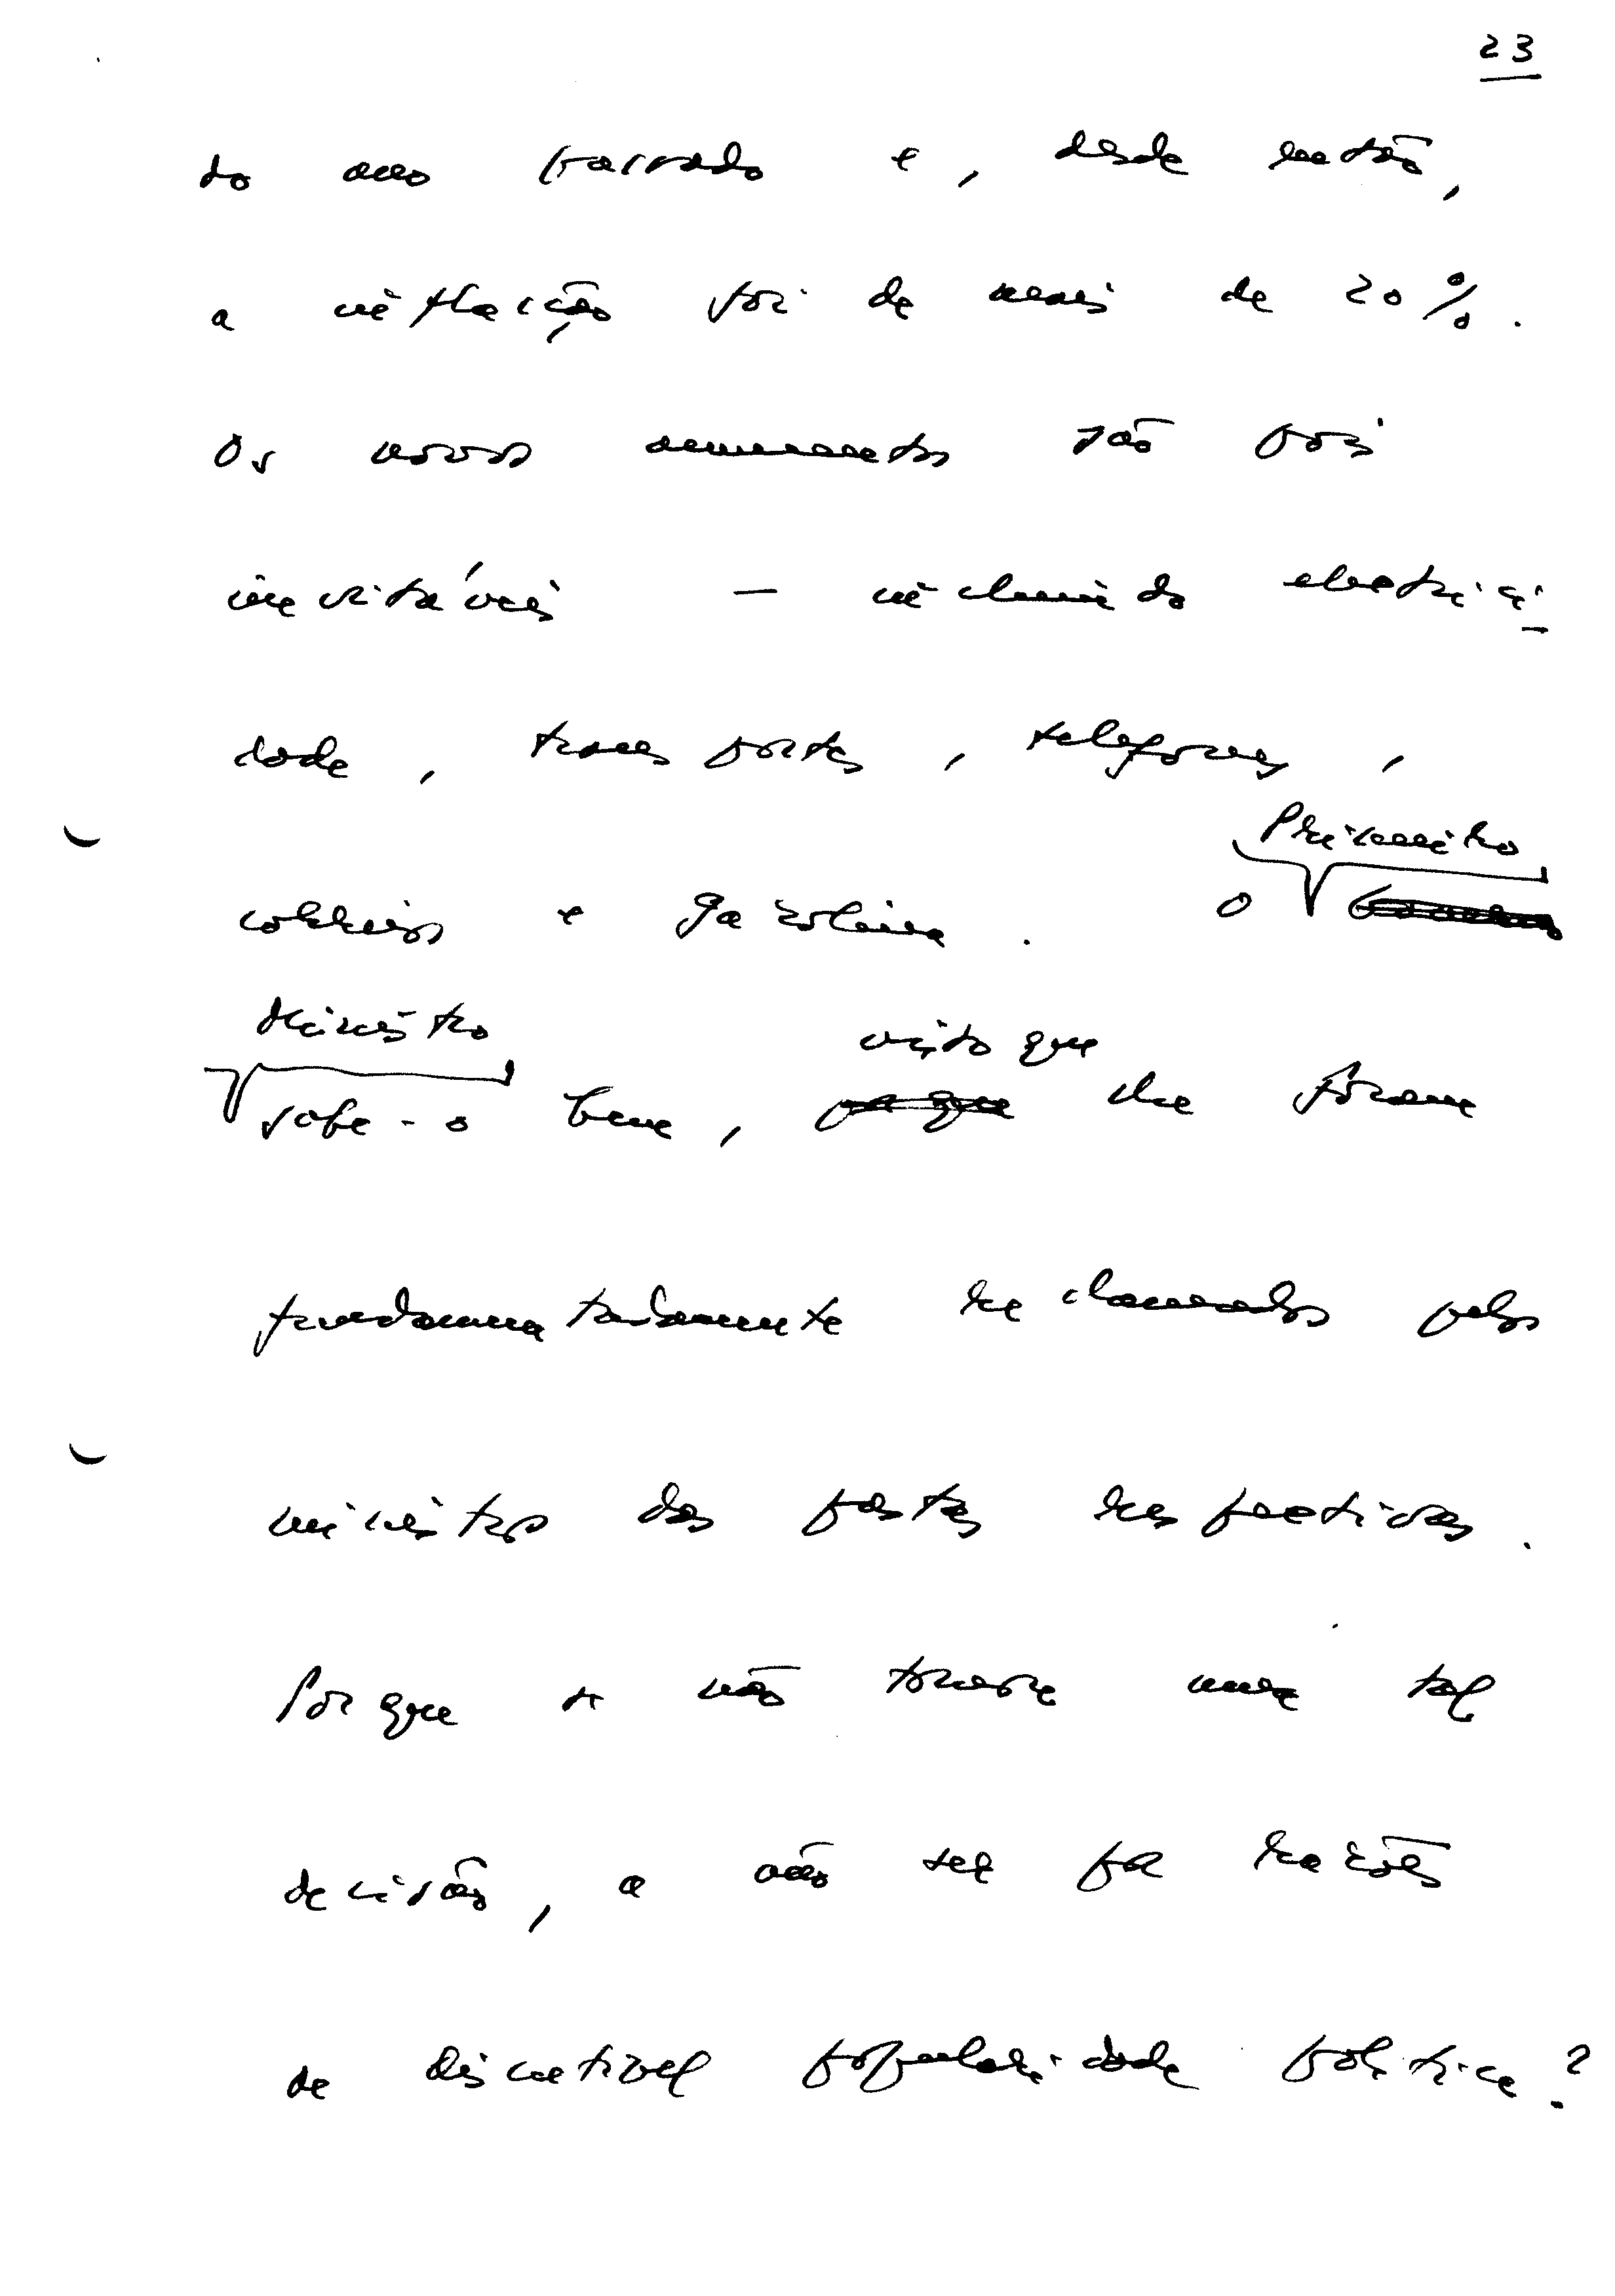 23
do ano passado e, desde então,
a inflação foi de mais de 20%.
Os novos aumentos são pois
inevitáveis — incluindo electrici-
dade, transportes, telefones,
correios e gasolina. O Primeiro
Ministro visto que
sabe-o bem, já que lhe foram
fundamentadamente reclamados pelos
ministros das pastas respectivas.
Porque se não tomou uma tal
decisão, a não ser por razões
de discutível popularidade política?